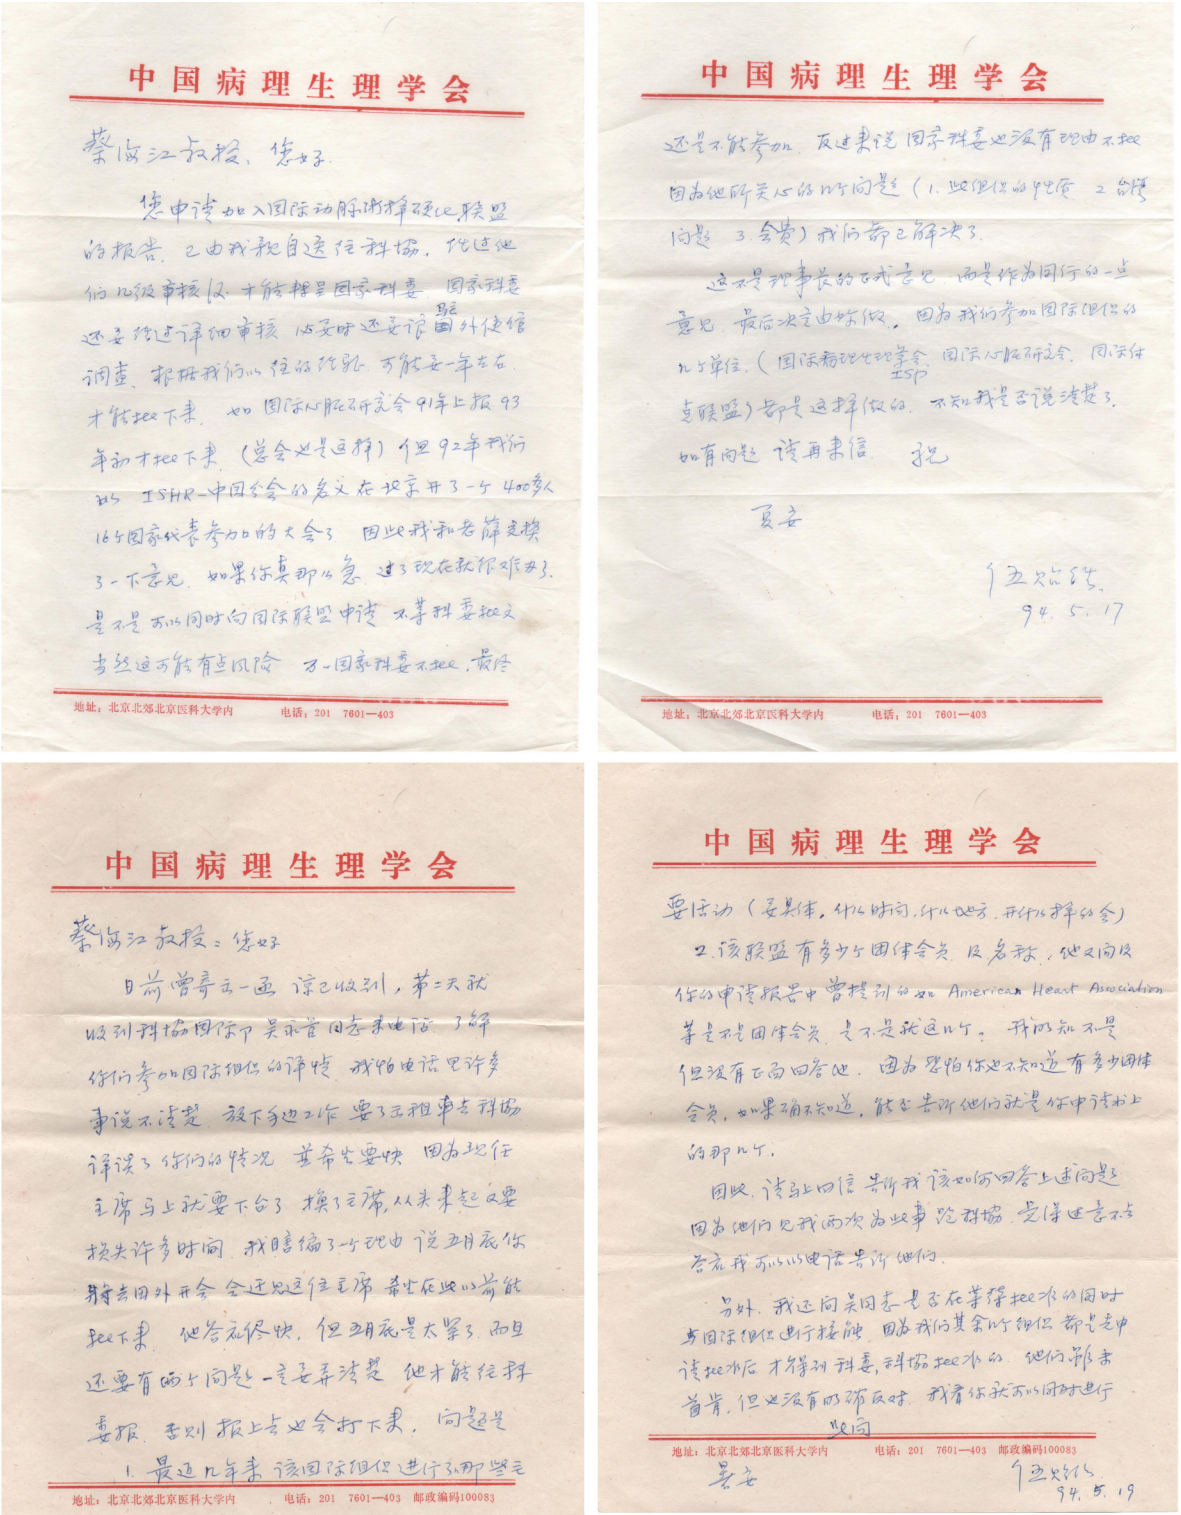 中国病理生理学会
蔡海江教授、您好.
您申请加入国际动脉粥样硬化联盟
的报告、已由我亲自送往科协。经过他
们几级审核后才能转呈国家科委 国家科委
还要经过详细审核 必要时还要请驻国外使馆
调查、根据我们以往的经验 可能要一年左右
才能批下来、如国际心脏研究会91年上报93
年初才批下来、(总会也是这样) 但92年我们
以 ISHR-中国分会的名义在北京开了一个400多人
16个国家代表参加的大会了 因此我和老薛交换
了一下意见、如果你真那么急、过了现在就很难办了、
是不是可以同时向国际联盟申请 不等科委批文
当然这可能有点风险 万一国家科委不批、最终
地址：北京北郊北京医科大学内 电话：201 7601—403
中国病理生理学会
还是不能参加、反过来说 国家科委也没有理由不批
因为他所关心的几个问题 (1. 此组织的性质 2. 台湾
问题 3. 会费) 我们都已解决了
这不是理事长的正式意见 而是作为同行的一点
意见、最后决定由你做。因为我们参加国际组织的
几个单位、(国际病理生理学会、国际心脏研究会、国际休
ISP
克联盟) 都是这样做的、不知我是否说清楚了、
如有问题 请再来信 祝
夏安
伍贻经
94. 5. 17
地址：北京北郊北京医科大学内 电话：201 7601—403
中国病理生理学会
蔡海江教授：您好
日前曾寄去一函 谅已收到，第二天就
收到科协国际部吴 同志来电话 了解
你们参加国际组织的详情、我怕电话里许多
事说不清楚 放下手边工作 要了出租车去科协
详谈了你们的情况 并希望要快 因为现任
主席马上就要下台了 换了主席，从头来起又要
损失许多时间、我瞎编了一个理由 说五月底你
将去国外开会 会还见这位主席 希望在此以前能
批下来 他答应尽快，但五月底是太早了 而且
还要有两个问题一定要弄清楚 他才能往科
委报、否则报上去也会打下来，问题是
1. 最近几年来 该国际组织进行了那些主
地址：北京北郊北京医科大学内 电话：201 7601—403 邮政编码100083
中国病理生理学会
要活动 (要具体，什么时间，什么地方，开什么样的会)
2. 该联盟有多少个团体会员 及名称，他又问及
你的申请报告中曾提到的如 American Heart Association
等是不是团体会员 是不是就这几个。我明知不是
但没有正面回答他、因为恐怕你也不知道有多少团体
会员，如果确不知道，能否告诉他们就是你申请书上
的那几个.
因此，请马上回信 告诉我该如何回答上述问题
因为他们见我两次为此事跑科协、觉得过意不去
答应我可以以电话告诉他们.
另外，我还问吴同志是否在等待批准的同时
与国际组织进行接触、因为我们其余几个组织都是先申
请批准后 才得到科委，科协批准的、他们虽未
首肯，但也没有明确反对、我看你就可以同时进行.
此问
暑安
伍贻经
94. 5. 19
地址：北京北郊北京医科大学内 电话：201 7601—403 邮政编码100083